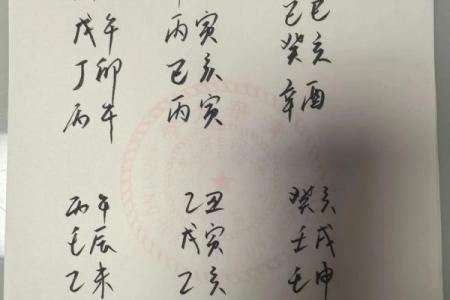 戊午 丙寅 己巳
丁卯 己亥 癸亥
丙午 丙寅 辛酉
丙午 乙丑 癸亥
壬辰 戊寅 壬戌
乙未 乙亥 壬申